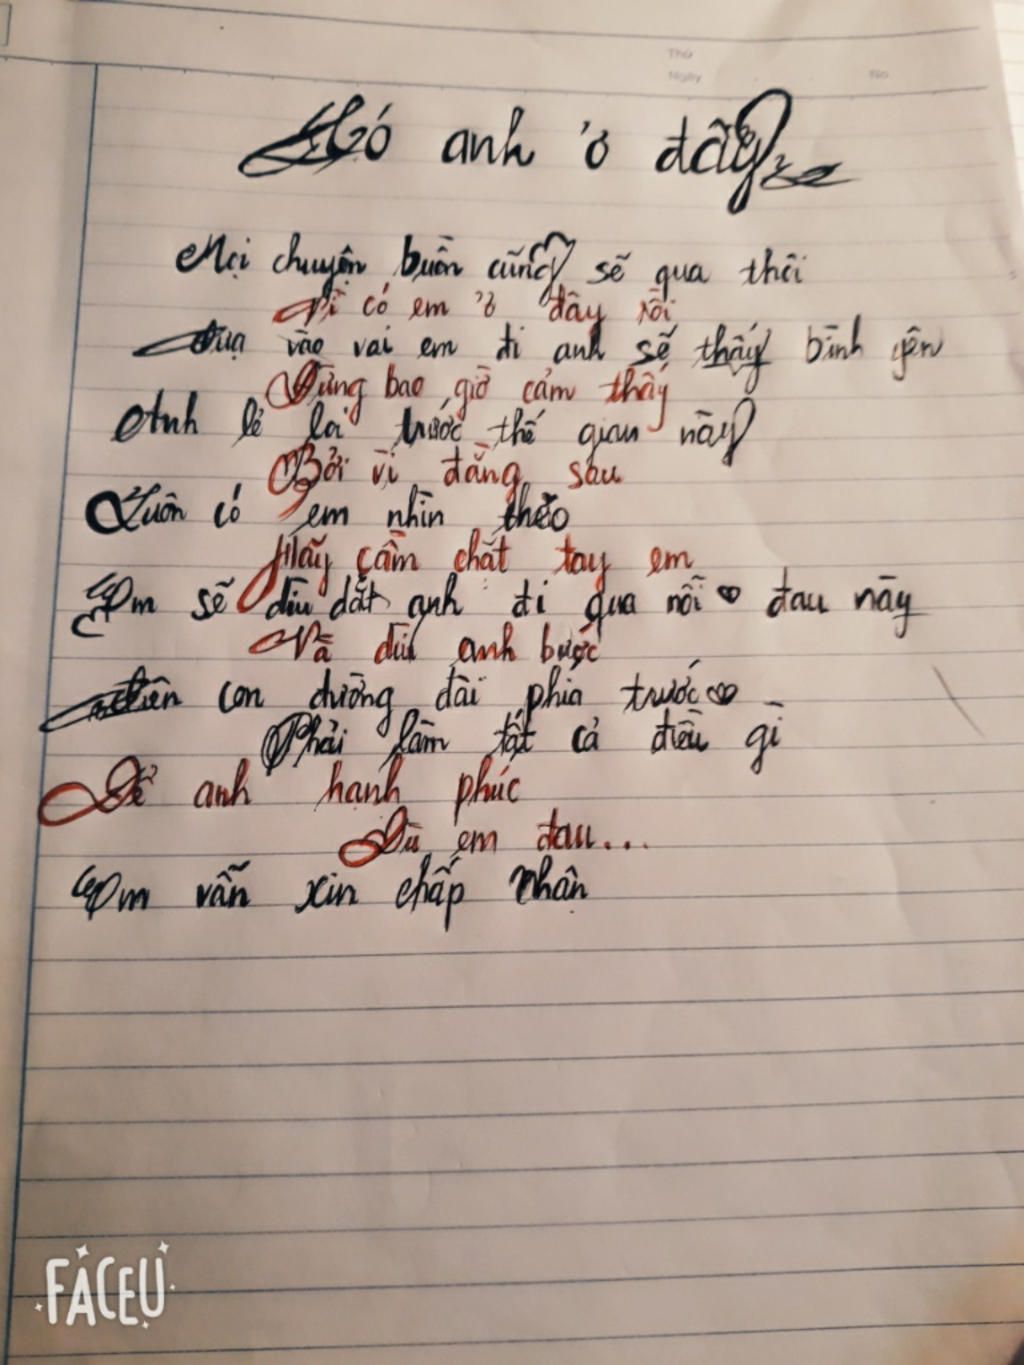 Thứ
Ngày No
Có anh ở đây
Mọi chuyện buồn cũng sẽ qua thôi
Vì có em ở đây rồi
Dựa vào vai em đi anh sẽ thấy bình yên
Đừng bao giờ cảm thấy
Anh lẻ loi trước thế gian này
Bởi vì đằng sau
Luôn có em nhìn theo
Hãy cầm chắt tay em
Em sẽ dìu dắt anh đi qua nỗi đau này
Và dìu anh bước
trên con đường dài phía trước
Phải làm tất cả điều gì
Để anh hạnh phúc
Dù em đau...
Em vẫn xin chấp nhận
FACEU